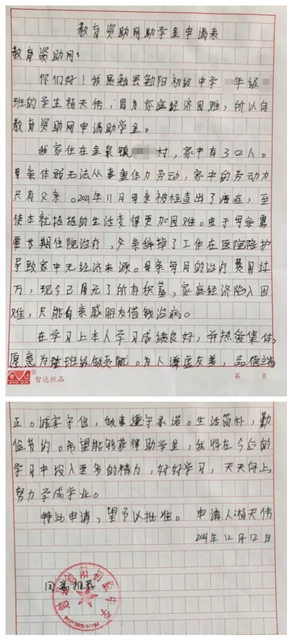 教育资助网助学金申请表
教育资助网:
你们好!我是勉县勉阳初级中学 年级
班的学生杨天伟,因为家庭经济困难,所以向
教育资助网申请助学金。
我家住在金泉镇 村,家中有3口人。
母亲体弱无法从事重体力劳动,家中的劳动力
只有父亲。2021年11月母亲被检查出了癌症,至
使本就拮据的生活变得更加困难。由于母亲需
要长期住院治疗,父亲辞掉了工作在医院陪护
导致家中无经济来源。母亲每月的治疗费用过
万,现今已用光了所有积蓄,家庭经济陷入困
难,只能靠亲戚朋友借钱治病。
在学习上本人学习成绩良好,并热爱集体,
愿意为班级做贡献。为人谦虚友善,品德端
智达纸品
第 页
正。诚实守信,做事遵守承诺。生活简朴,勤
俭节约。希望能够获得助学金,我将在今后的
学习中投入更多的精力,好好学习,天天向上
努力学成学业。
特此申请,望予以批准。 申请人:杨天伟
2021年12月12日
同意推荐